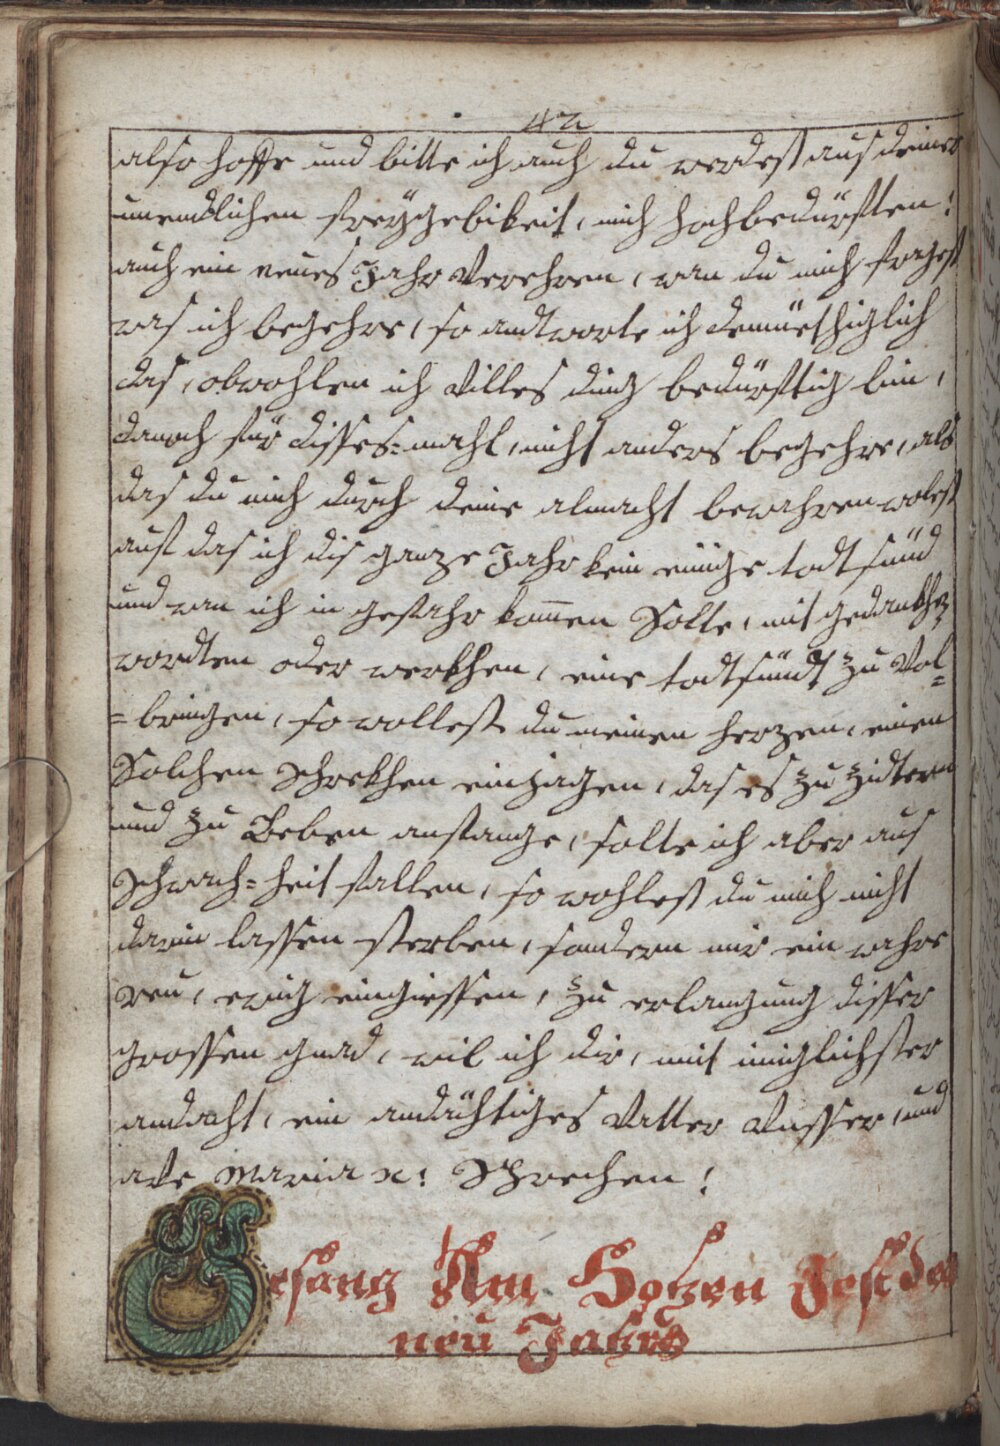 42
also hoffe und bitte ich auch du werdest aus deiner
unendlichen freÿgebikeit, mich hochbedürfften!
auch ein neues Jahr Verehren, wan du mich fragest
was ich begehre, so andtworte ich demüethiglich
das, obwohlen ich Villes ding bedürfftig bin,
danoch für disses-mahl, nicht anders begehre, als
das du mich durch deine almacht bewahren wolest
auf das ich dis ganze Jahr kein einige todt sünd
und wan ich in gefahr kom̅en Solte, mit gedankhen
wordten oder werkhen, eine todtsündt zu Vol=
=bringen, so wollest du meinen herzen, einen
Solchen schrekhen einjagen, das es zu zidtern
und zu Beben anfange, solte ich aber aus
schwach=heit fallen, so wohlest du mich nicht
darin lassen sterben, sondern mir ein wahre
reu, ewig eingiessen, zu erlangung disser
grossen gnad, wil ich dir, mit iniglichster
andacht, ein andächtiges Vatter Unsser, und
ave Maria x! Sprechen!
Gesang Am Hochen Fest des
neu Jahrs